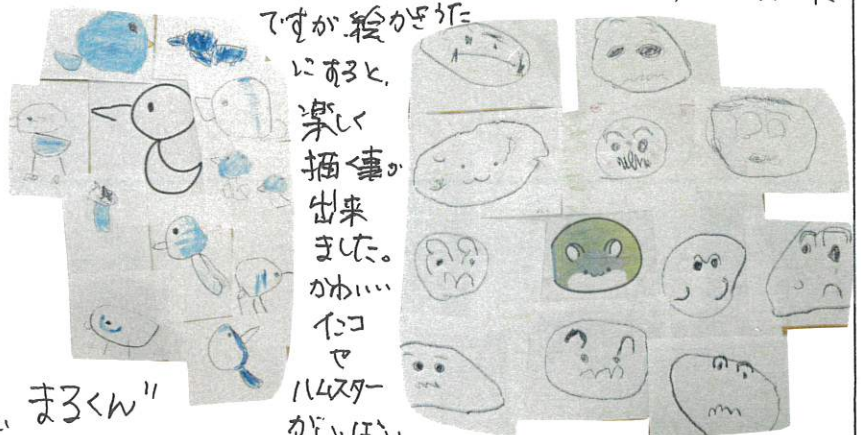 ですが、絵かきうた
にすると、
楽しく
描く事が
出来
ました。
かわいい
インコ
や
ハムスター
がいっぱい
まるくん"